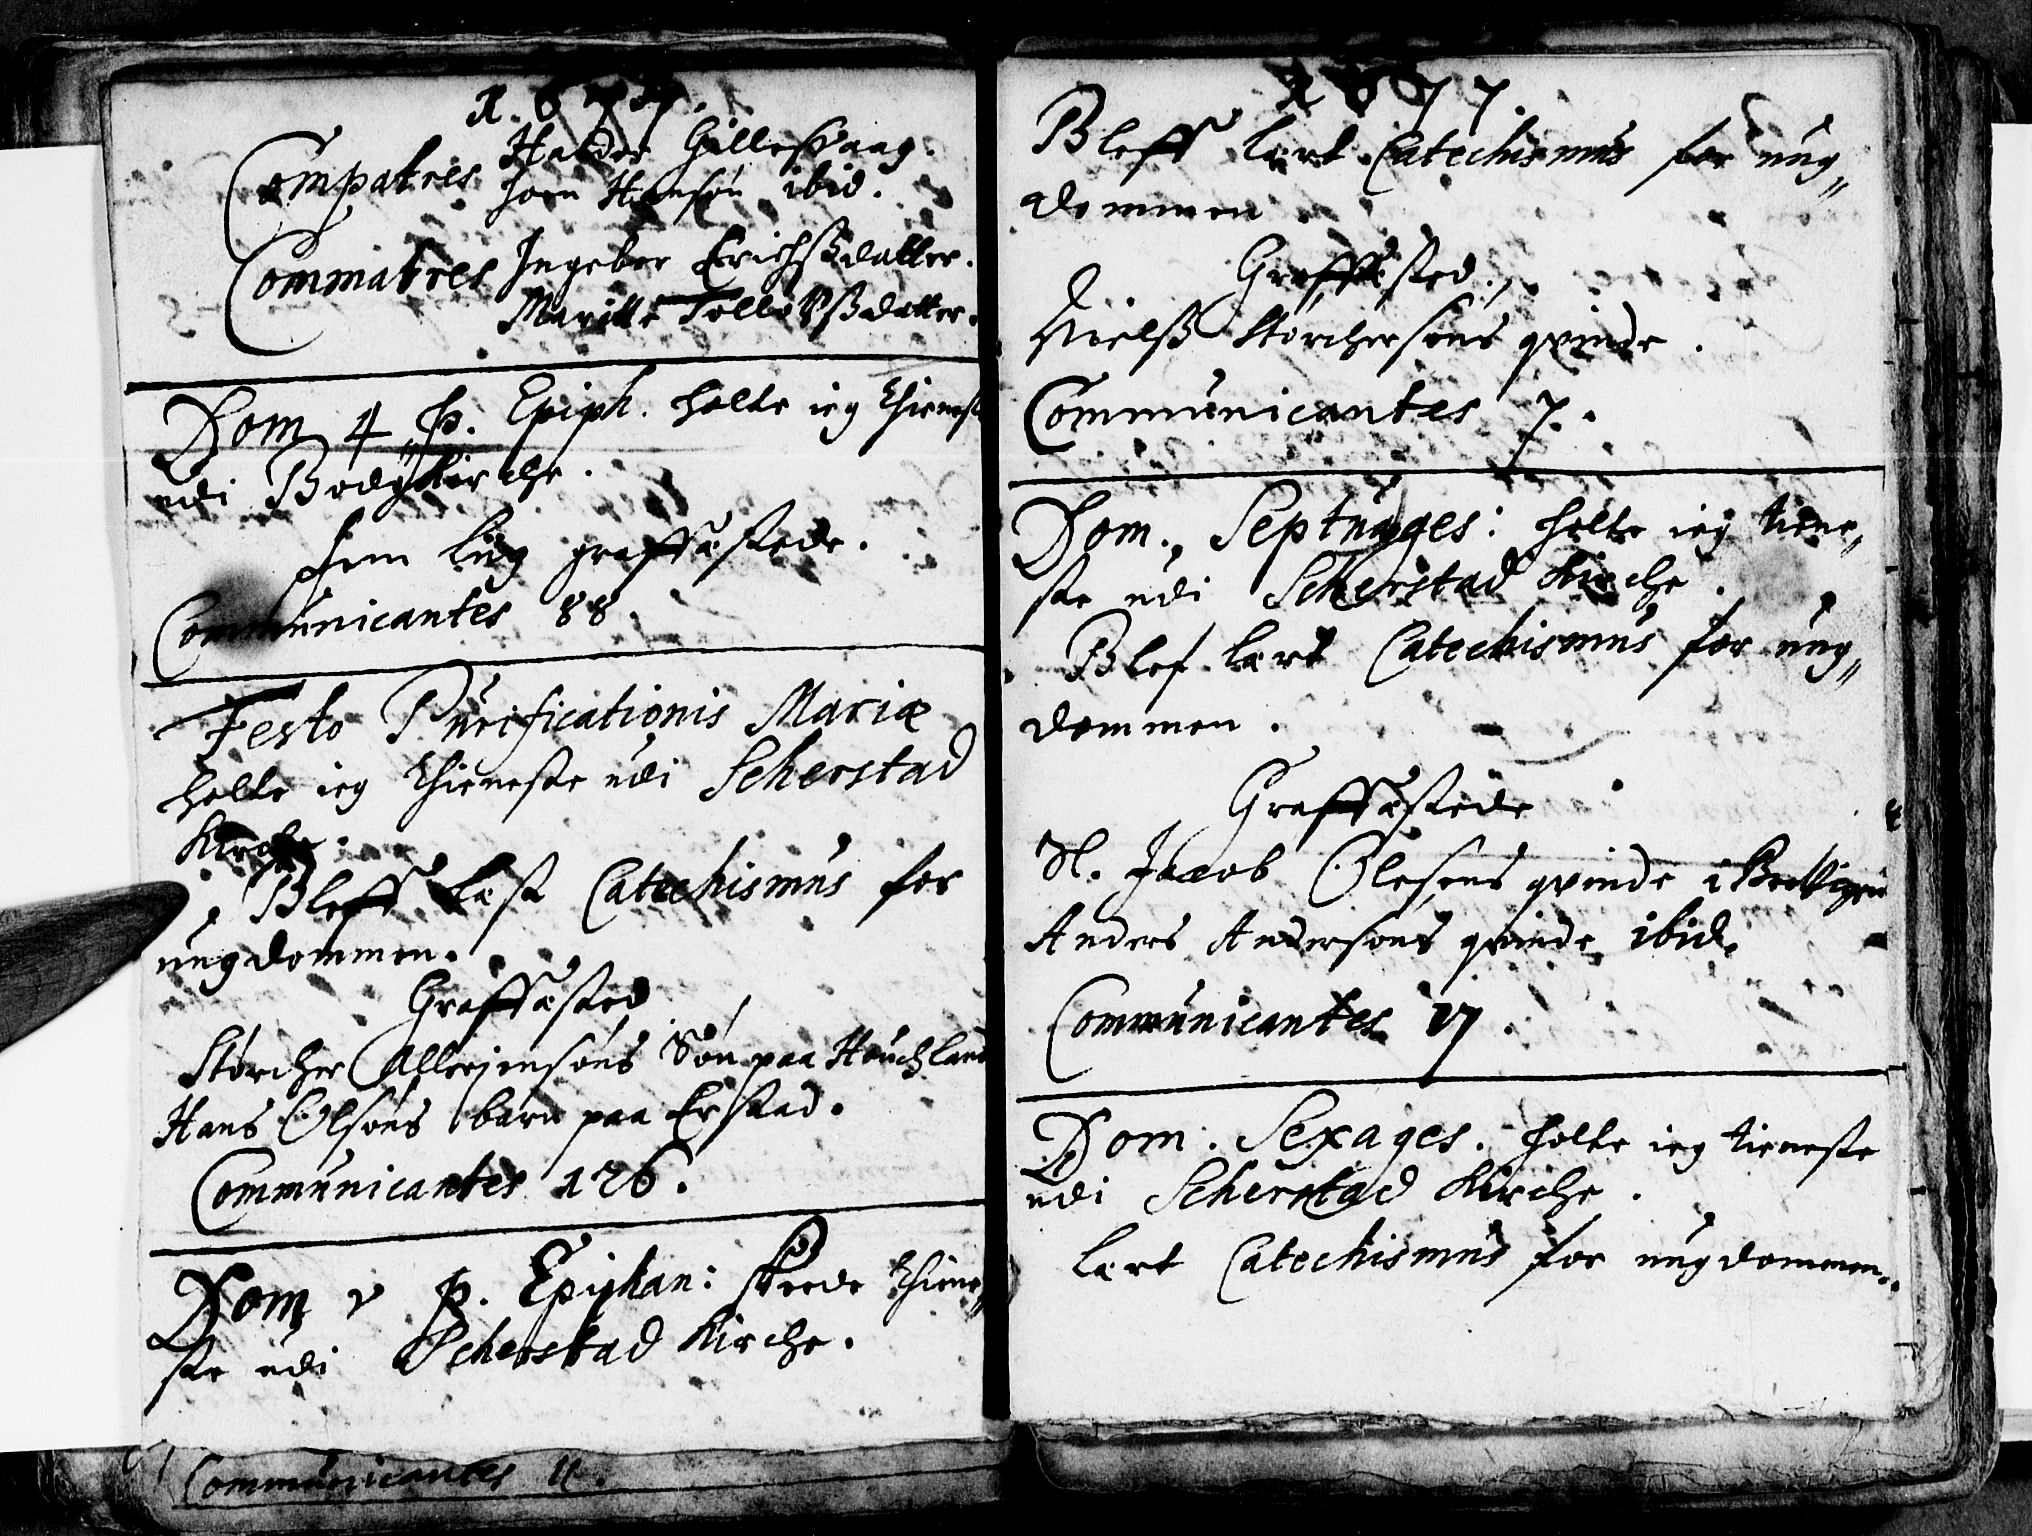 1677.
Compatres Halder Gillesvaag.
Joen Hansøn ibid.
Commatres Ingebor Erichsdatter.
Maritte Tolloffsdatter.
Dom 4 p. Epiph. holte ieg thienest
udi Bodøkirche.
fem liig graffæstede.
Communicantes 88.
Festo Purificationis Mariæ
holte ieg thieneste udi Scherstad
Kirche.
Bleff læst Catechismus for
ungdommen.
Graffæsted
Storcher Allerjensøns Søn paa Houchland
Hans Olsøns barn paa Erstad.
Communicantes 126.
Dom v p. Epiphan: skeede thiene„
ste udi Scherstad Kirche.
Communicantes 11.
1677.
Bleff lært Catechismus for ung„
dommen.
Graffæsted.
Nielss Storchersøns qvinde.
Communicantes 7.
Dom. Septuages: holte ieg tiene„
ste udi Scherstad Kirche.
Blef lært Catechismus for ung„
dommen.
Graffæstede
Sl. Jacob Olesens qvinde i
Anders Andersøns qvinde ibid.
Communicantes 17.
Dom. Sexages. holte ieg tieneste
udi Scherstad Kirche.
lært Catechismus for ungdommen.